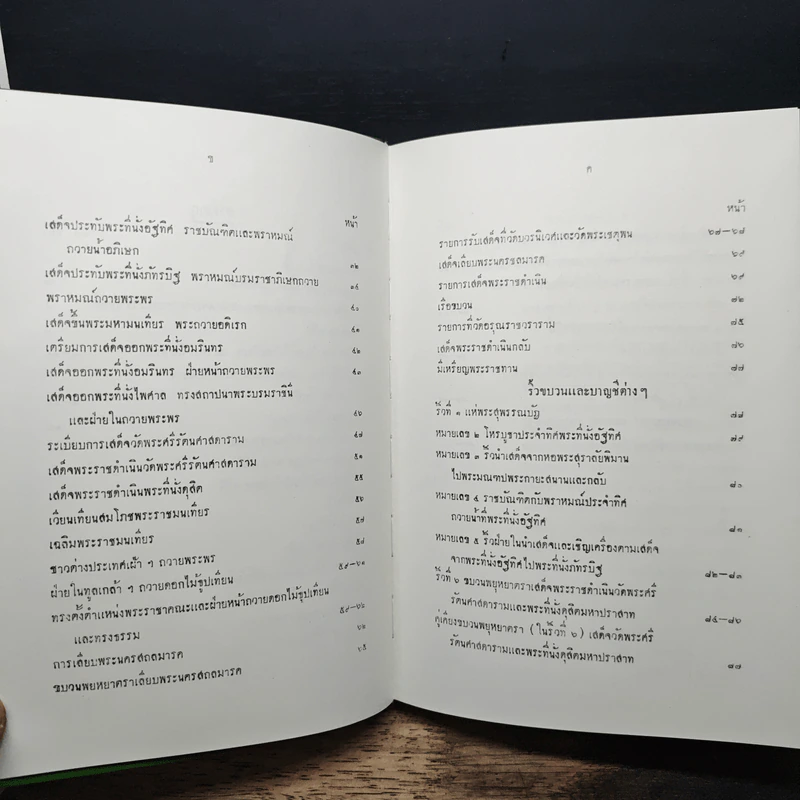 ข
หน้า
เสด็จประทับพระที่นั่งอัฐทิศ ราชบัณฑิตและพราหมณ์
ถวายน้ำอภิเษก ๓๒
เสด็จประทับพระที่นั่งภัทรบิฐ พราหมณ์บรมราชาภิเษกถวาย ๓๔
พราหมณ์ถวายพระพร ๔๐
เสด็จขึ้นพระมหามนเทียร พระถวายอดิเรก ๔๑
เตรียมการเสด็จออกพระที่นั่งอมรินทร ๔๒
เสด็จออกพระที่นั่งอมรินทร ฝ่ายหน้าถวายพระพร ๔๓
เสด็จออกพระที่นั่งไพศาล ทรงสถาปนาพระบรมราชินี
และฝ่ายในถวายพระพร ๔๖
ระเบียบการเสด็จวัดพระศรีรัตนศาสดาราม ๔๗
เสด็จพระราชดำเนินวัดพระศรีรัตนศาสดาราม ๕๑
เสด็จพระราชดำเนินพระที่นั่งดุสิต ๕๕
เวียนเทียนสมโภชพระราชมนเทียร ๕๖
เฉลิมพระราชมนเทียร ๕๗
ชาวต่างประเทศเฝ้า ฯ ถวายพระพร
ฝ่ายในทูลเกล้า ฯ ถวายดอกไม้ธูปเทียน ๕๙—๖๑
ทรงตั้งตำแหน่งพระราชาคณะและฝ่ายหน้าถวายดอกไม้ธูปเทียน
และทรงธรรม ๕๙—๖๒
การเลียบพระนครสถลมารค ๖๒
ขบวนพยุหยาตราเลียบพระนครสถลมารค ๖๕
ค
หน้า
รายการรับเสด็จที่วัดบวรนิเวศและวัดพระเชตุพน ๖๗—๖๘
เสด็จเลียบพระนครชลมารค ๖๙
รายการเสด็จพระราชดำเนิน ๖๙
เรือขบวน ๗๒
รายการที่วัดอรุณราชวราราม ๗๕
เสด็จพระราชดำเนินกลับ ๗๖
มีเหรียญพระราชทาน ๗๗
ริ้วขบวนและบาญชีต่าง ๆ
ริ้วที่ ๑ แห่พระสุพรรณบัฏ ๗๘
หมายเลข ๒ โหรบูชาประจำทิศพระที่นั่งอัฐทิศ ๗๙
หมายเลข ๓ ริ้วนำเสด็จจากหอพระสุราลัยพิมาน
ไปพระมณฑปพระกระยาสนานและกลับ ๘๑
หมายเลข ๔ ราชบัณฑิตกับพราหมณ์ประจำทิศ
ถวายน้ำที่พระที่นั่งอัฐทิศ ๘๑
หมายเลข ๕ ริ้วฝ่ายในนำเสด็จและเชิญเครื่องตามเสด็จ
จากพระที่นั่งอัฐทิศไปพระที่นั่งภัทรบิฐ ๘๒—๘๓
ริ้วที่ ๖ ขบวนพยุหยาตราเสด็จพระราชดำเนินวัดพระศรี
รัตนศาสดารามและพระที่นั่งดุสิตมหาปราสาท ๘๔—๘๖
คู่เคียงขบวนพยุหยาตรา (ในริ้วที่ ๖) เสด็จวัดพระศรี
รัตนศาสดารามและพระที่นั่งดุสิตมหาปราสาท ๘๗